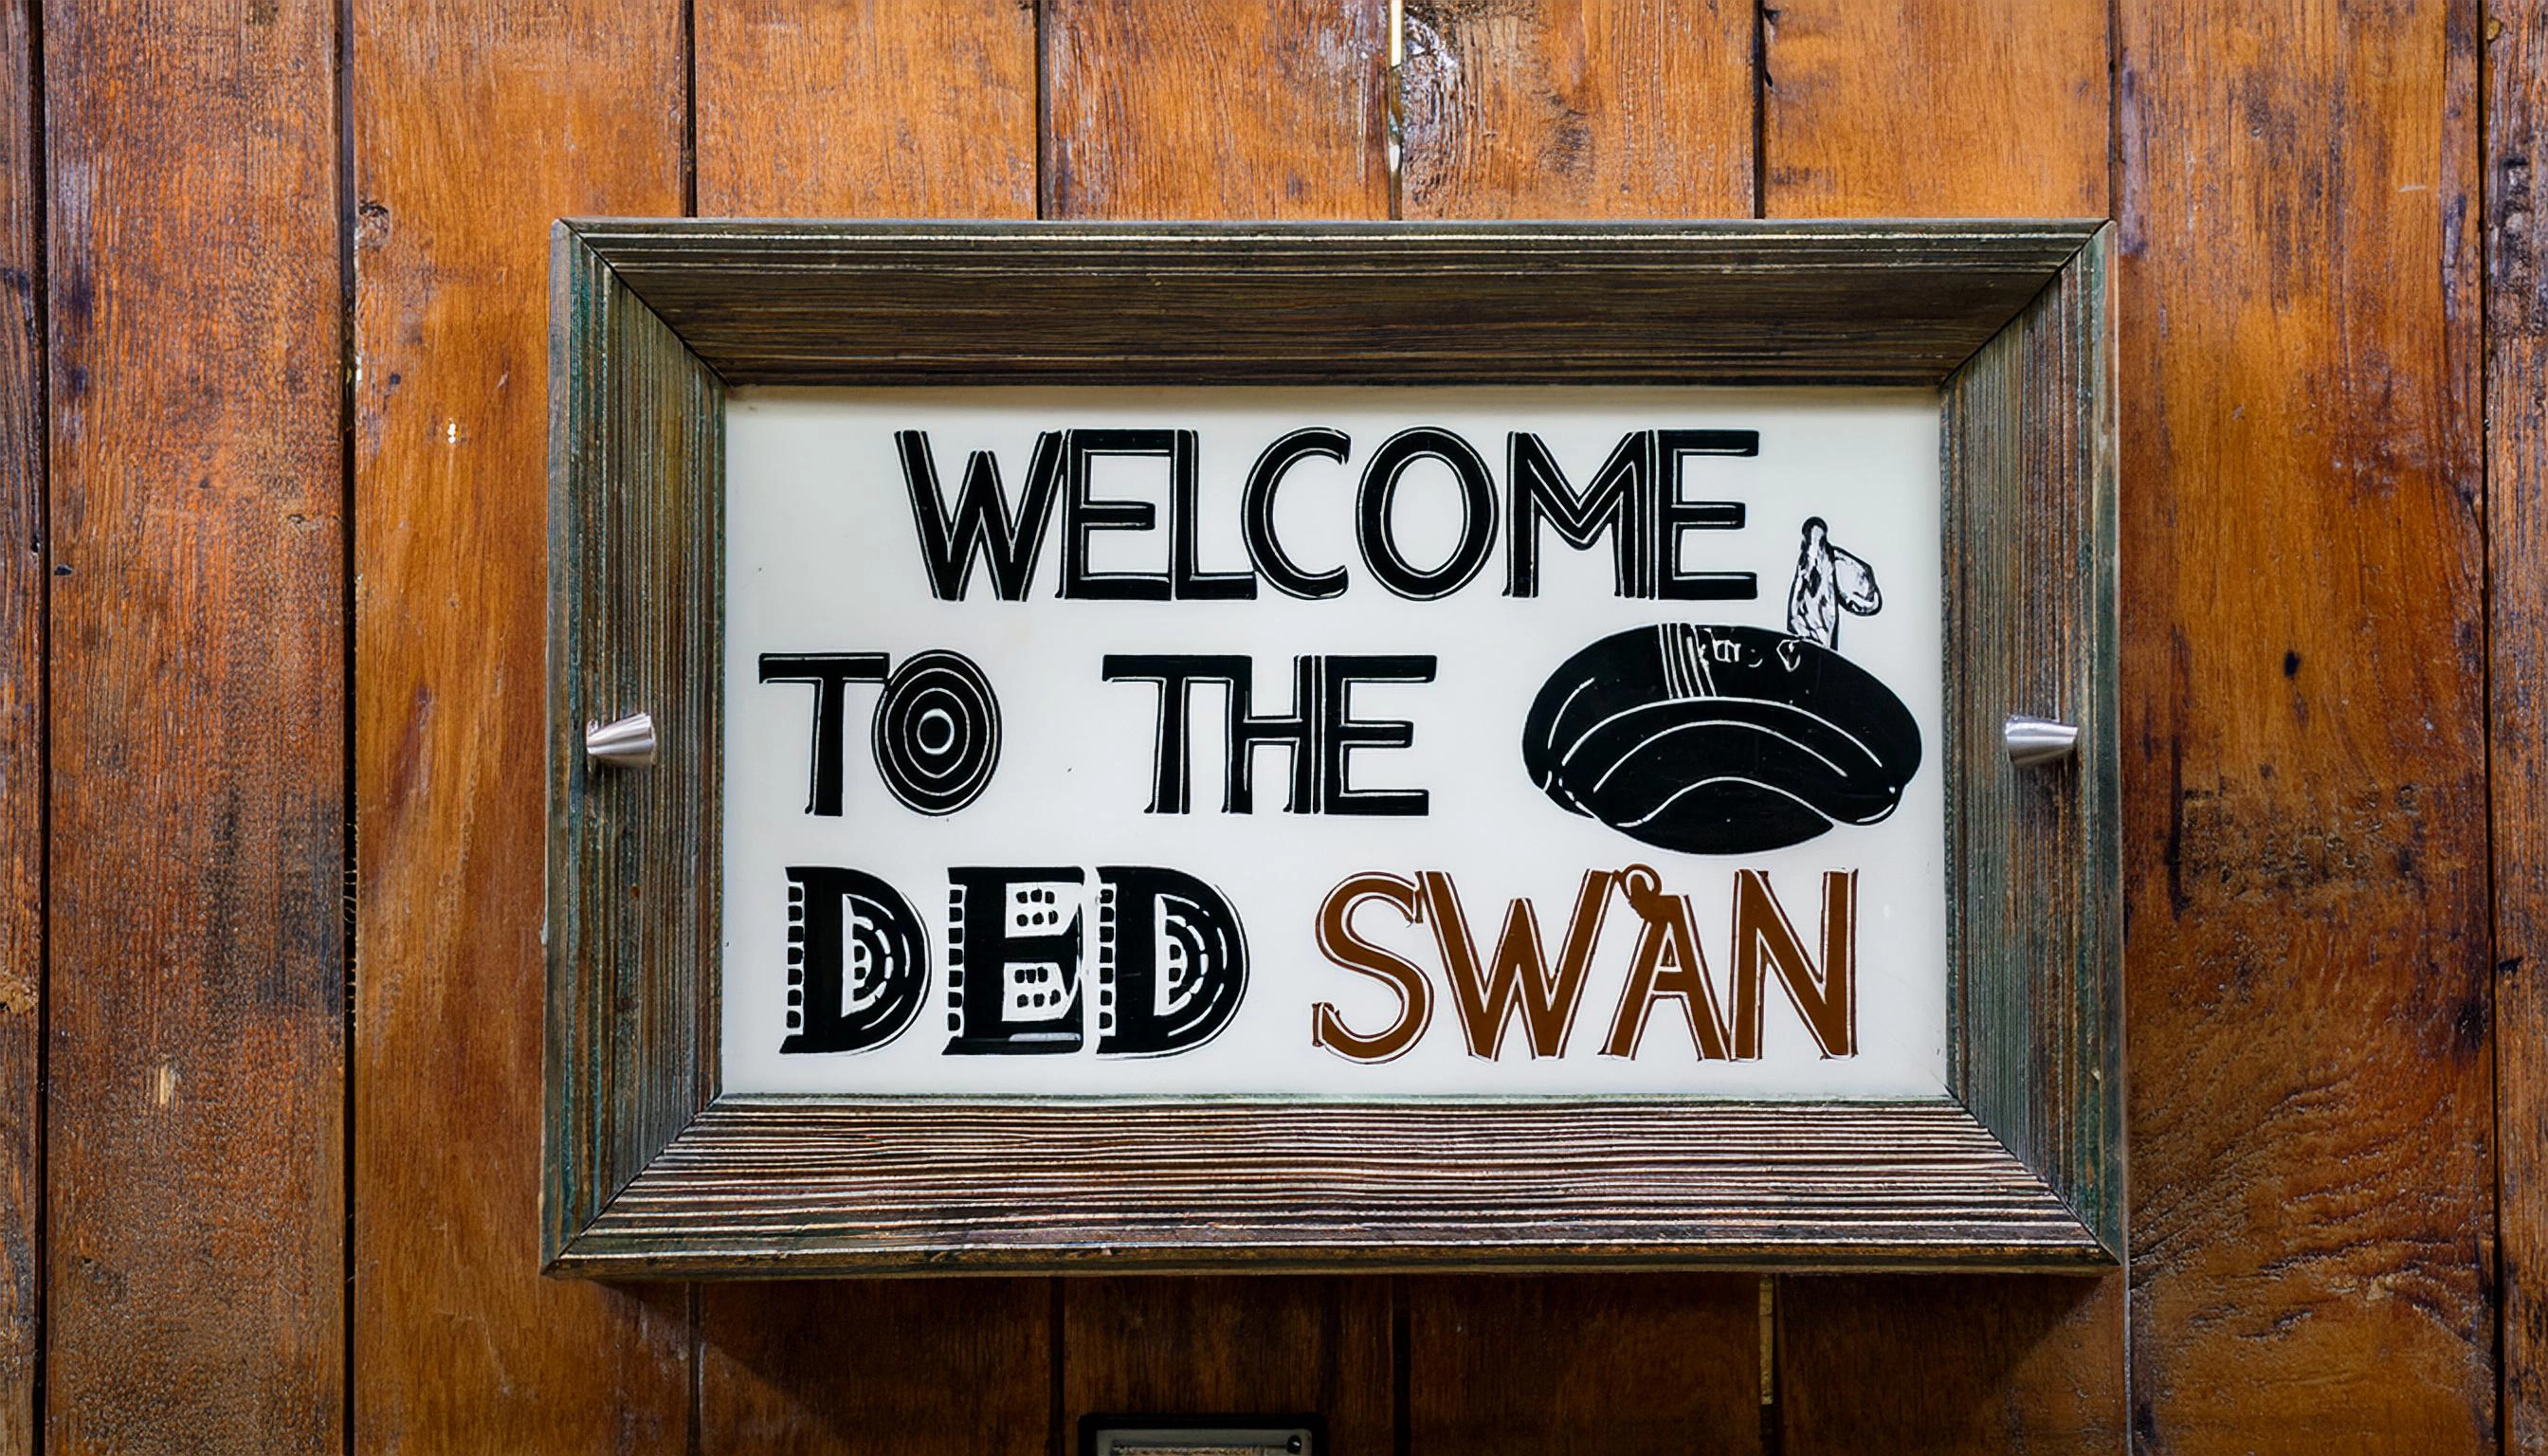 WELCOME
TO THE
DED SWAN